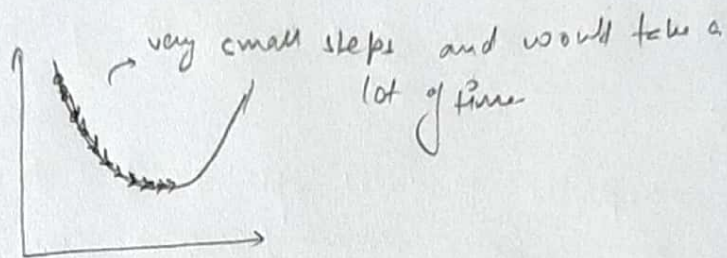 very small steps and would take a
lot of time